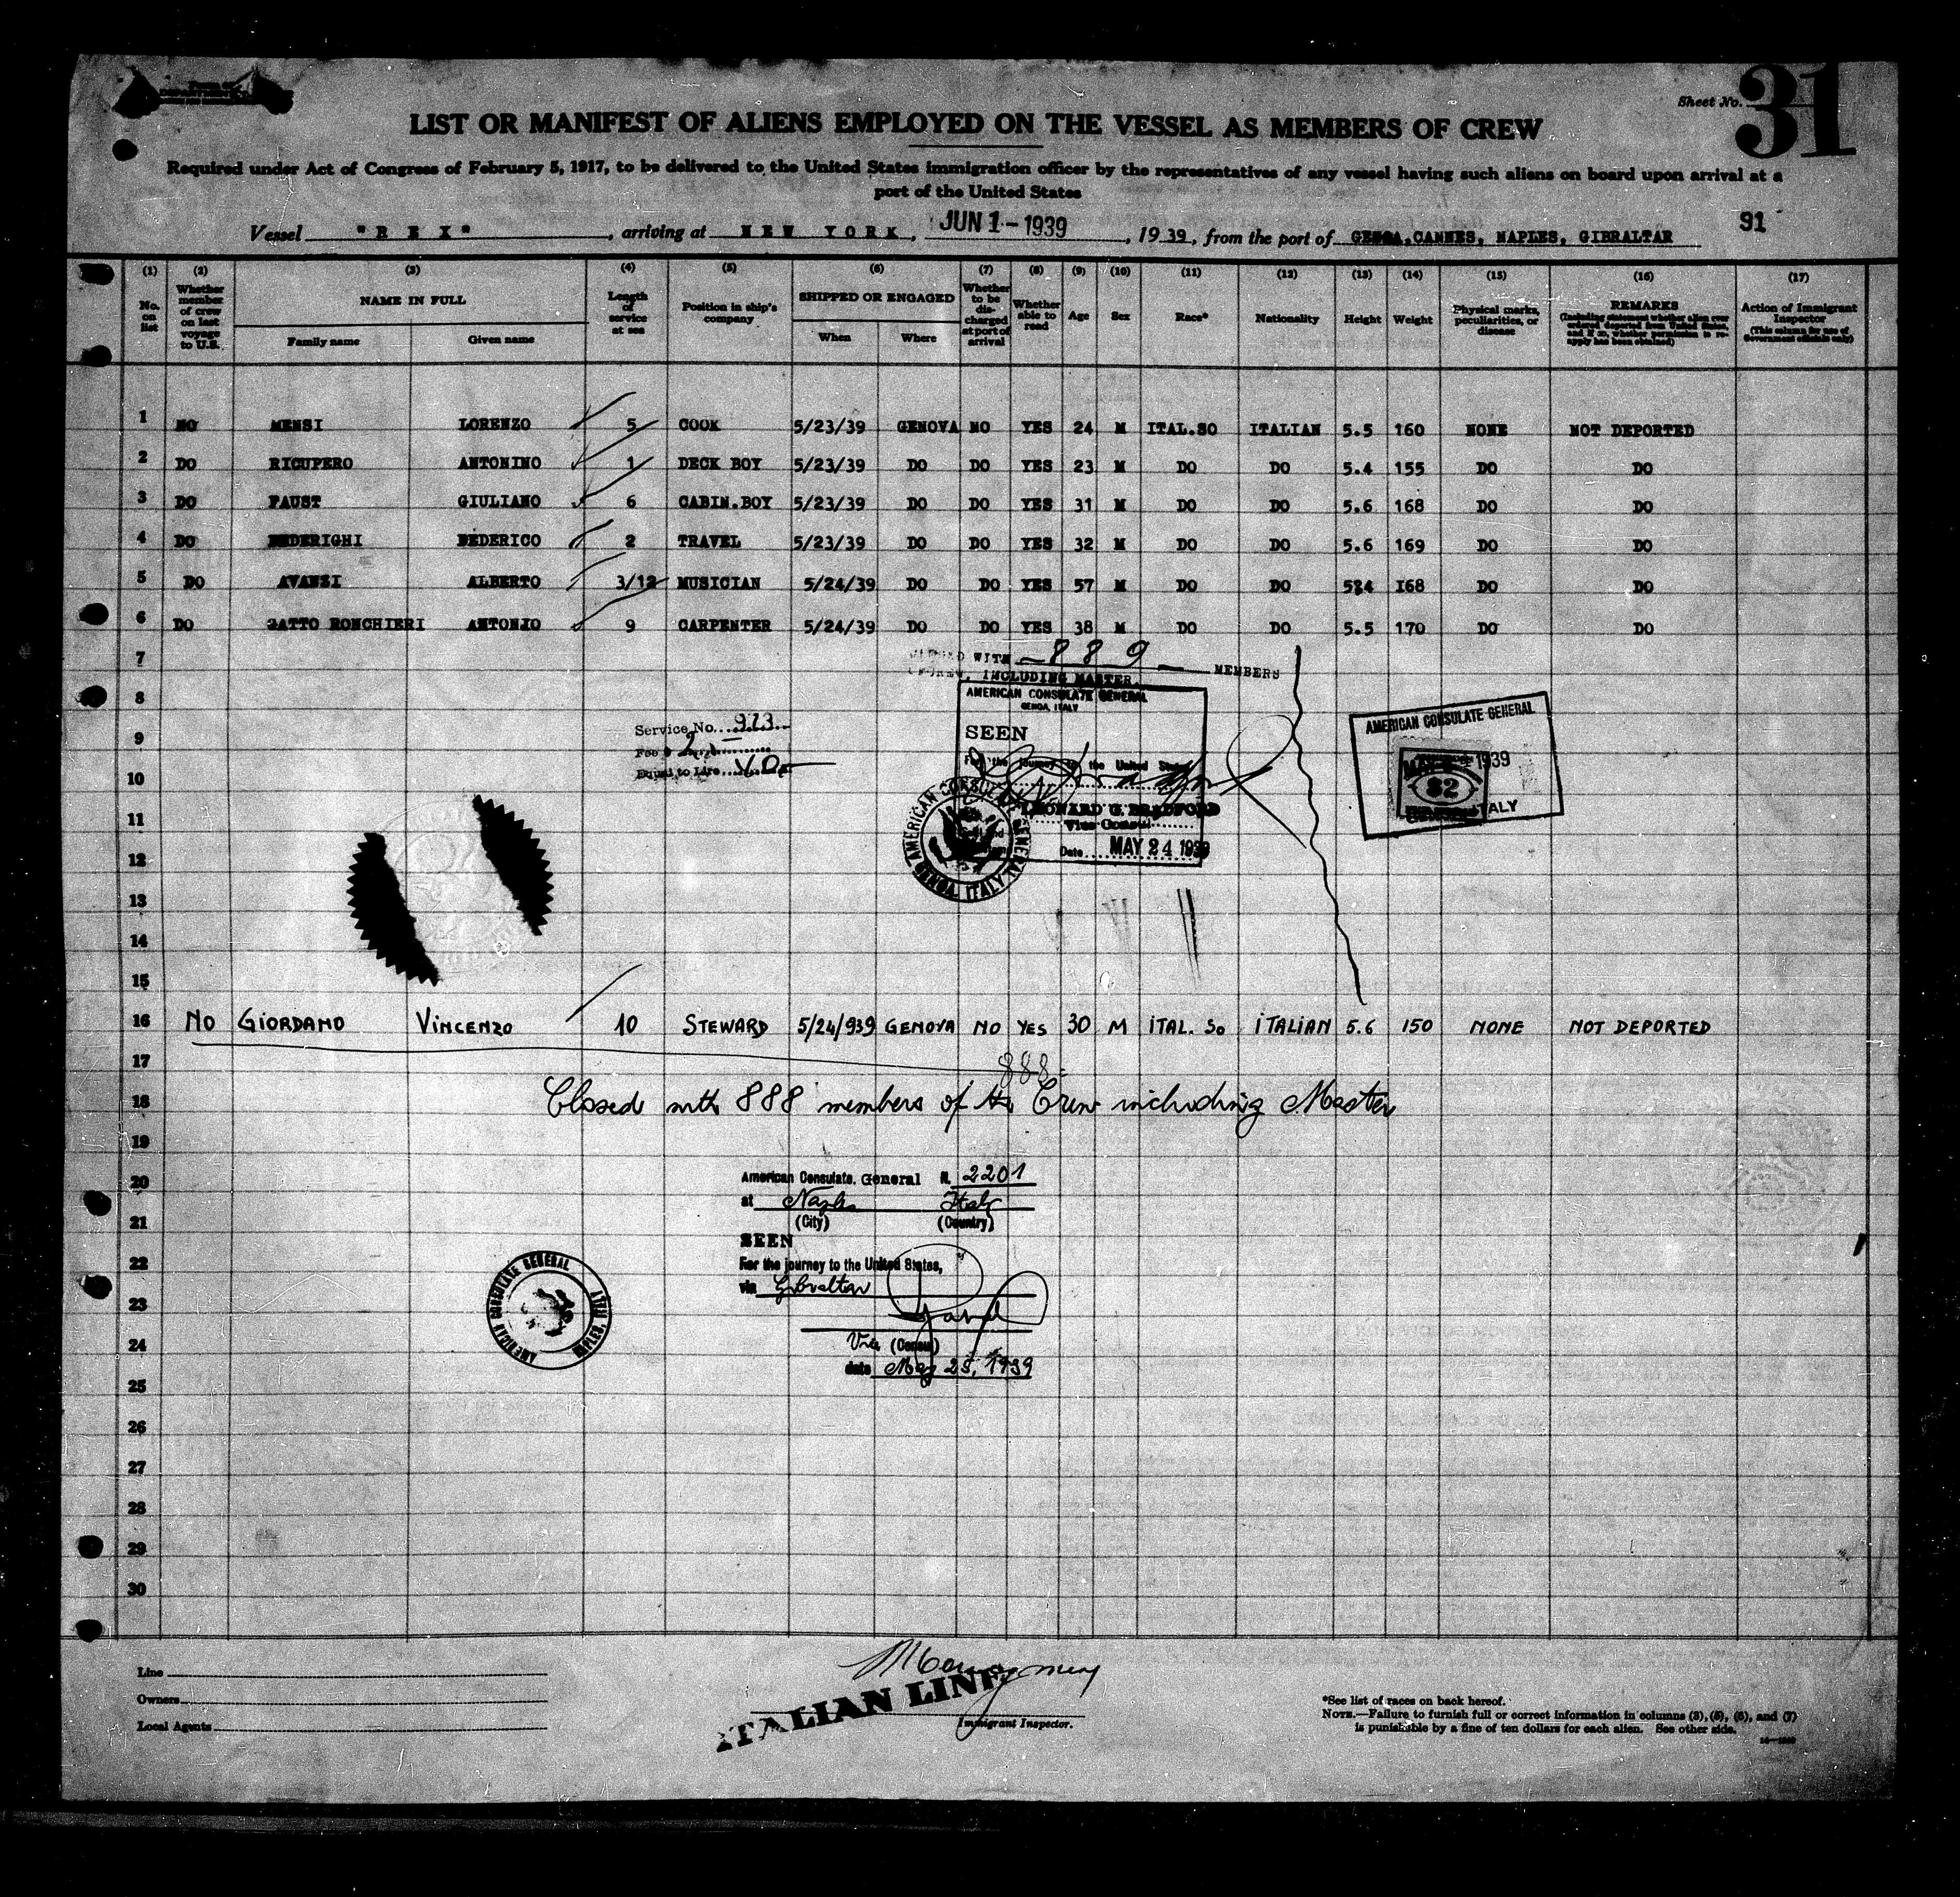 Sheet No. 31
LIST OR MANIFEST OF ALIENS EMPLOYED ON THE VESSEL AS MEMBERS OF CREW
Required under Act of Congress of February 5, 1917, to be delivered to the United States immigration officer by the representatives of any vessel having such aliens on board upon arrival at a
port of the United States
91
Vessel "R E X", arriving at NEW YORK, JUN 1 - 1939, 1939, from the port of GENOA, CANNES, NAPLES, GIBRALTAR
(1) (2) (3) (4) (5) (6) (7) (8) (9) (10) (11) (12) (13) (14) (15) (16) (17)
No. on list
Whether member of crew on last voyage to U.S.
NAME IN FULL
Family name Given name
Length of service at sea
Position in ship's company
SHIPPED OR ENGAGED
When Where
Whether to be discharged at port of arrival
Whether able to read
Age
Sex
Race*
Nationality
Height
Weight
Physical marks, peculiarities, or disease
REMARKS
(Including statement whether alien ever ordered deported from United States, and if so, whether permission to reapply has been obtained)
Action of Immigrant Inspector
(This column for use of Government officials only)
1 NO MENSI LORENZO 5 COOK 5/23/39 GENOVA NO YES 24 M ITAL.SO ITALIAN 5.5 160 NONE NOT DEPORTED
2 DO RICUPERO ANTONINO 1 DECK BOY 5/23/39 DO DO YES 23 M DO DO 5.4 155 DO DO
3 DO FAUST GIULIANO 6 CABIN.BOY 5/23/39 DO DO YES 31 M DO DO 5.6 168 DO DO
4 DO FEDERIGHI FEDERICO 2 TRAVEL 5/23/39 DO DO YES 32 M DO DO 5.6 169 DO DO
5 DO AVANZI ALBERTO 3/12 MUSICIAN 5/24/39 DO DO YES 57 M DO DO 5.4 168 DO DO
6 DO GATTO RONCHIERI ANTONIO 9 CARPENTER 5/24/39 DO DO YES 38 M DO DO 5.5 170 DO DO
7 WITH 889 MEMBERS
CREW, INCLUDING MASTER.
8
AMERICAN CONSULATE GENERAL
GENOA, ITALY
SEEN
For the journey to the United States
LEONARD G. BRADFORD
Vice Consul
Date MAY 24 1939
AMERICAN CONSULATE GENERAL GENOA, ITALY
Service No. 913
Fee $ 2
Equal to Lire
AMERICAN CONSULATE GENERAL
MAY 1939
$2
ITALY
9
10
11
12
13
14
15
16 NO GIORDANO VINCENZO 10 STEWARD 5/24/939 GENOVA NO YES 30 M ITAL. So ITALIAN 5.6 150 NONE NOT DEPORTED
17 888=
18 Closed with 888 members of the Crew including Master
19
20 American Consulate General N. 2201
at Naples Italy
21 (City) (Country)
SEEN
22 For the journey to the United States,
via Gibraltar
23
24 Vice (Consul)
date May 25, 1939
AMERICAN CONSULATE GENERAL NAPLES, ITALY
25
26
27
28
29
30
Line
Owners
Local Agents
ITALIAN LINE
Immigrant Inspector.
*See list of races on back hereof.
NOTE.—Failure to furnish full or correct information in columns (3), (5), (6), and (7)
is punishable by a fine of ten dollars for each alien. See other side.